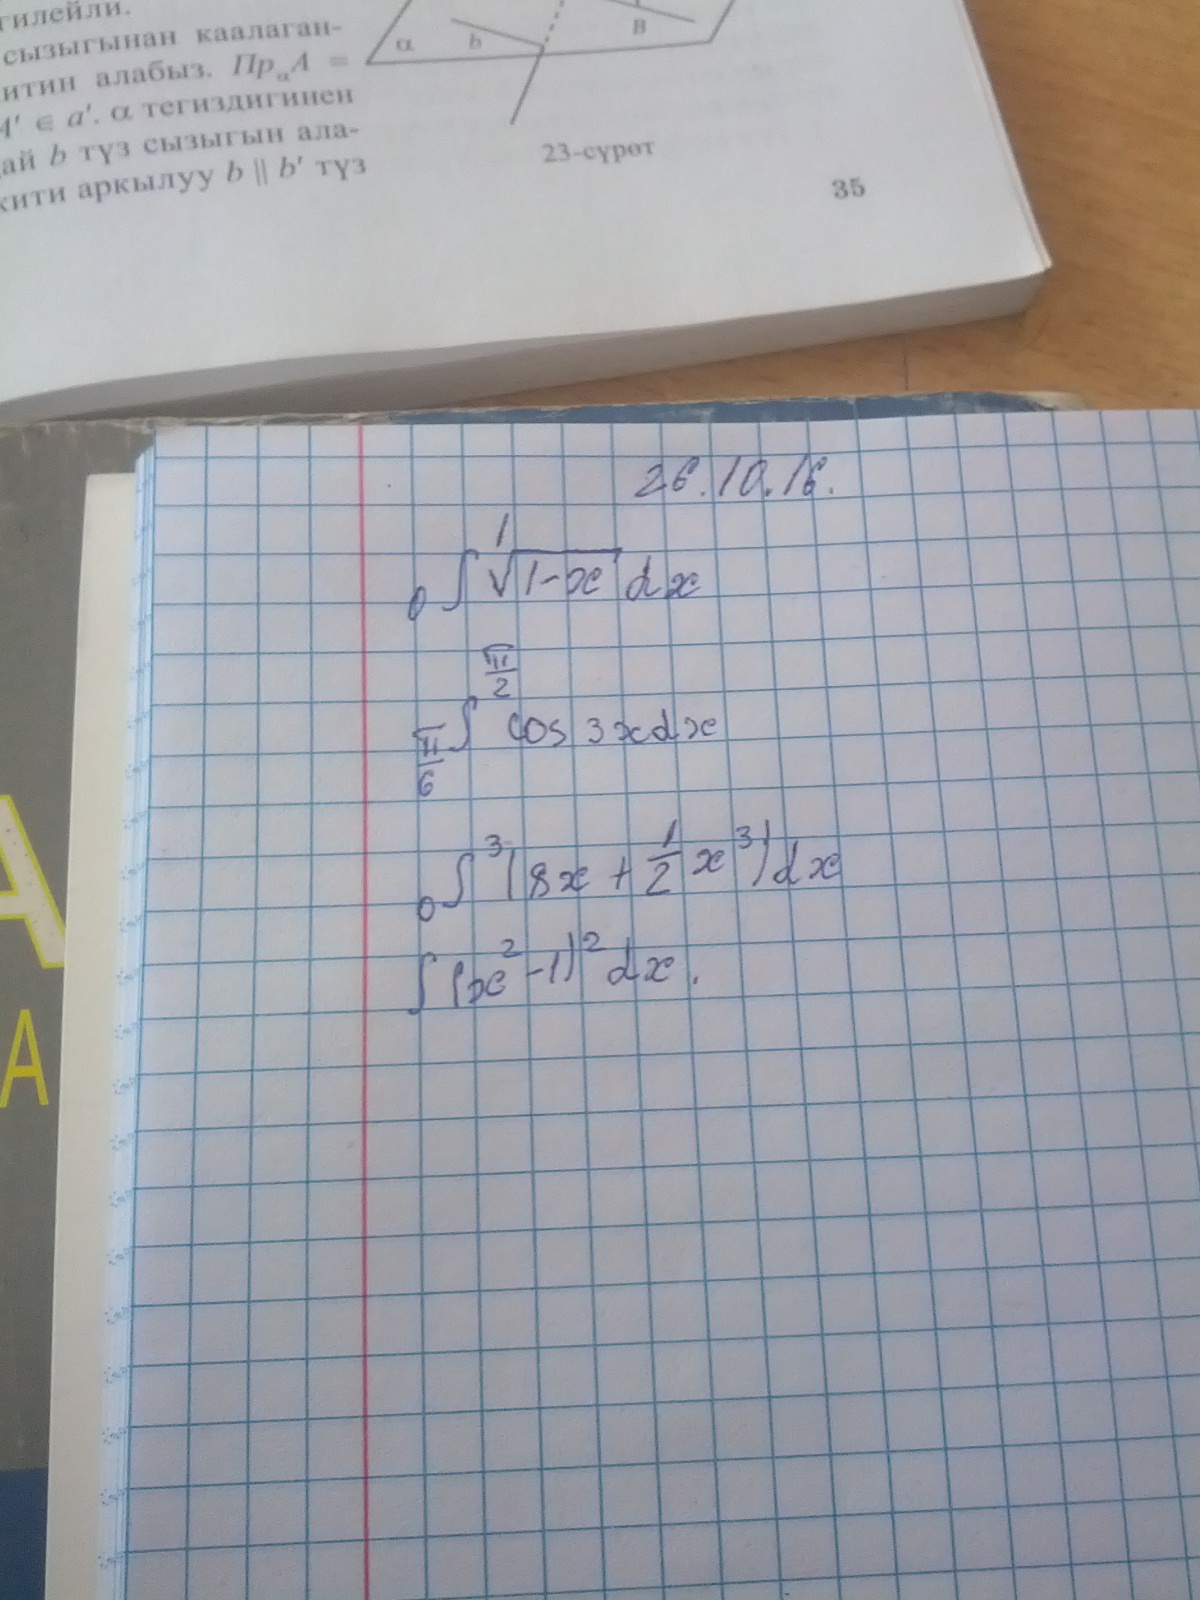 гилейли.
сызыгынан каалаган-
итин алабыз. Пр_α A =
A' ∈ a'. α тегиздигинен
ай b түз сызыгын ала-
кити аркылуу b || b' түз
α b B
23-сүрөт
35
26.10.16.
₀∫¹ √(1-x) dx
_{π/6}∫^{π/2} cos 3xdx
₀∫³ (8x + 1/2 x³)dx
∫(x²-1)² dx.
A
A